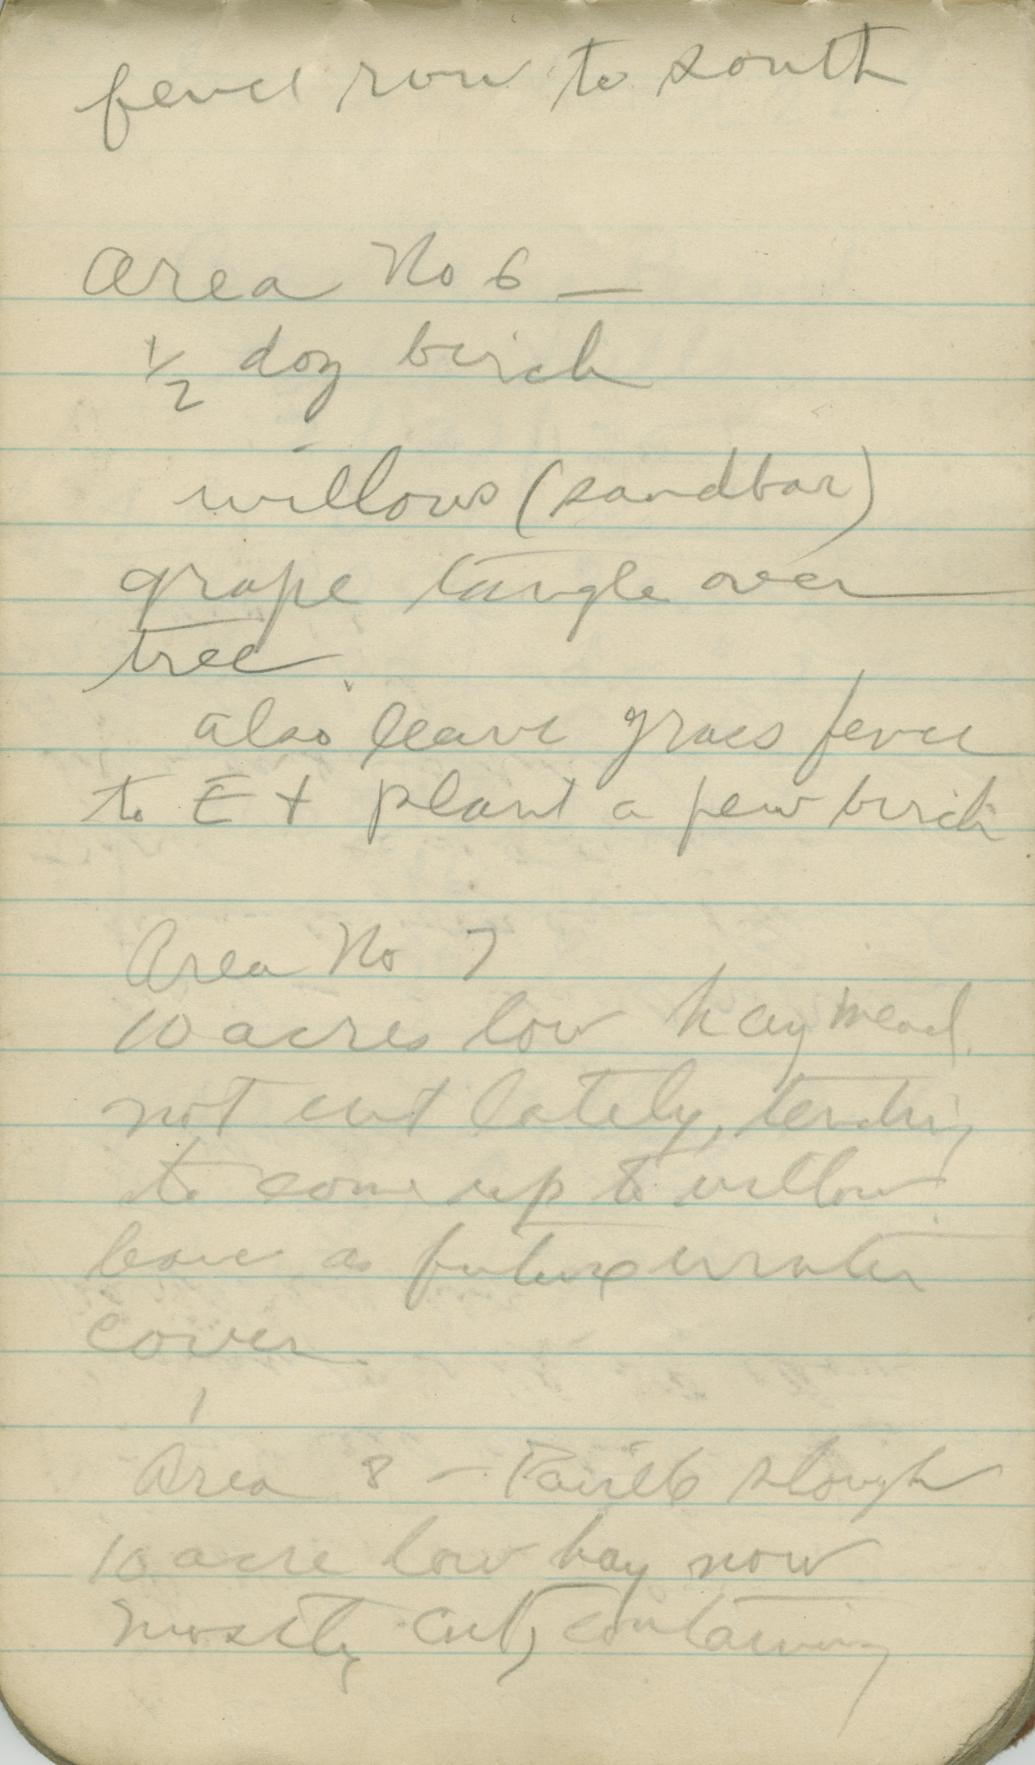 fence row to south
Area No 6 —
1/2 doz birch
willows (sandbar)
grape tangle over
tree
also leave grass fence
to E + plant a few birch
Area No 7
10 acres low hay mead.
not cut lately, tending
to come up to willow
leave as future winter
cover.
Area 8 — slough
10 acre low hay now
mostly cut, containing